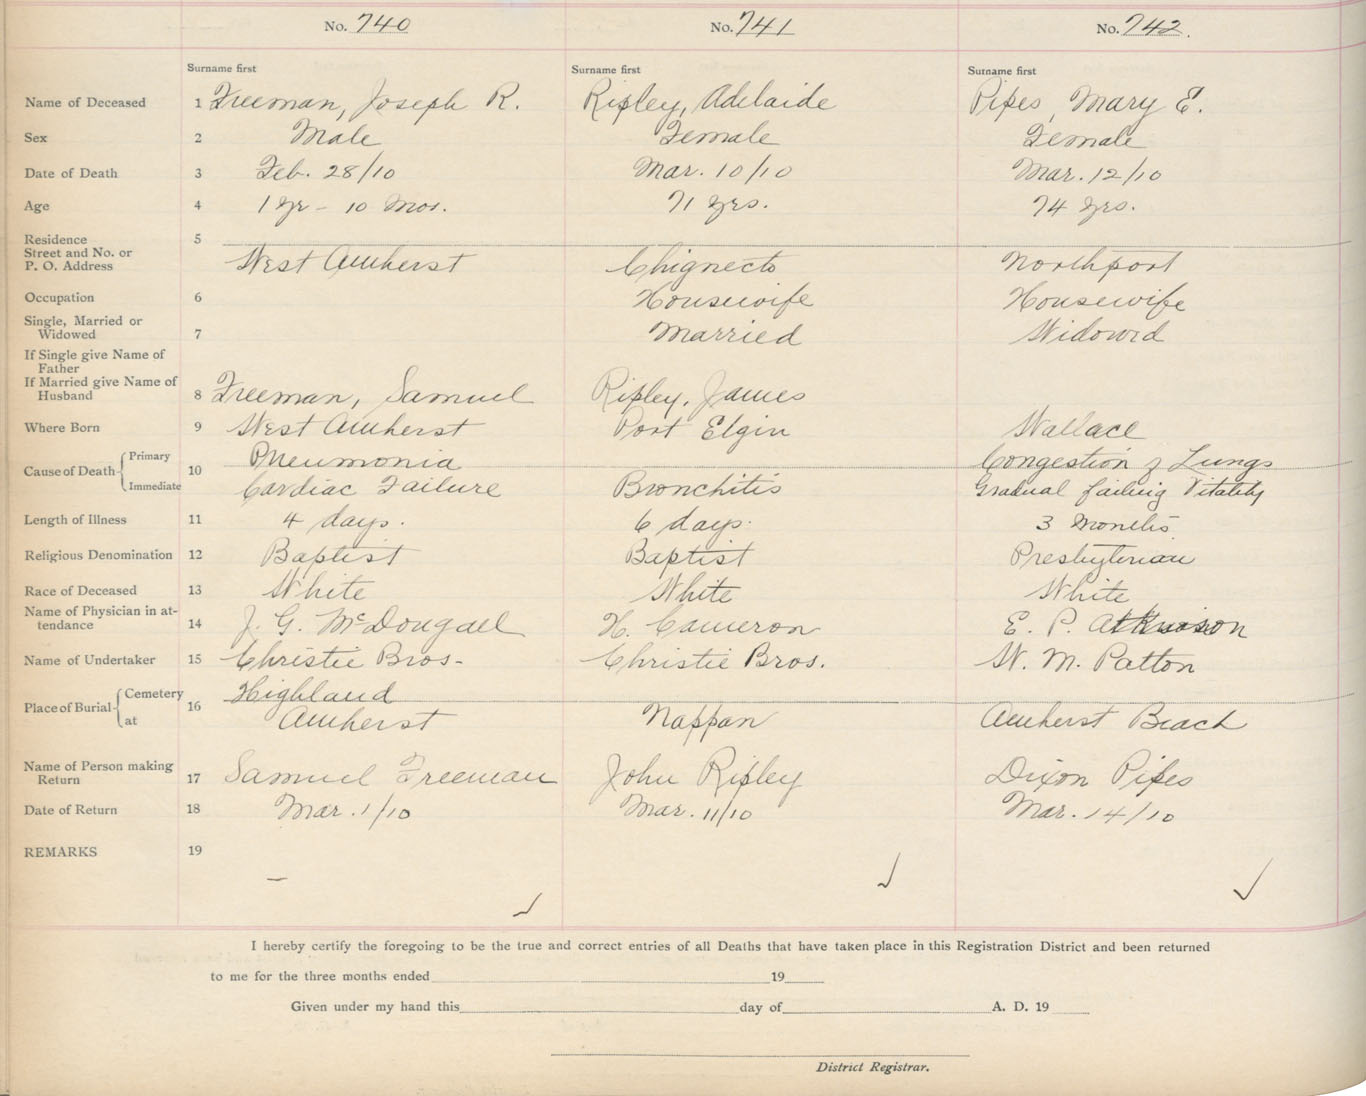 No. 740 No. 741 No. 742.
Surname first Surname first Surname first
Name of Deceased 1 Freeman, Joseph R. Ripley, Adelaide Pipes, Mary E.
Sex 2 Male Female Female
Date of Death 3 Feb. 28/10 Mar. 10/10 Mar. 12/10
Age 4 1 yr - 10 mos. 71 yrs. 74 yrs.
Residence 5
Street and No. or
P. O. Address West Amherst Chignecto Northport
Occupation 6 Housewife Housewife
Single, Married or
Widowed 7 Married Widowd
If Single give Name of
Father
If Married give Name of
Husband 8 Freeman, Samuel Ripley, James
Where Born 9 West Amherst Port Elgin Wallace
Cause of Death 10 Primary Pneumonia Congestion of Lungs
Immediate Cardiac Failure Bronchitis Gradual failing Vitality
Length of Illness 11 4 days. 6 days. 3 months
Religious Denomination 12 Baptist Baptist Presbyterian
Race of Deceased 13 White White White
Name of Physician in at-
tendance 14 J. G. McDougall H. Cameron E. P. Atkinson
Name of Undertaker 15 Christie Bros- Christie Bros. W. M. Patton
Place of Burial 16 Cemetery Highland
at Amherst Nappan Amherst Beach
Name of Person making
Return 17 Samuel Freeman John Ripley Dixon Pipes
Date of Return 18 Mar. 1/10 Mar. 11/10 Mar. 14/10
REMARKS 19 —
I hereby certify the foregoing to be the true and correct entries of all Deaths that have taken place in this Registration District and been returned
to me for the three months ended 19
Given under my hand this day of A. D. 19
District Registrar.